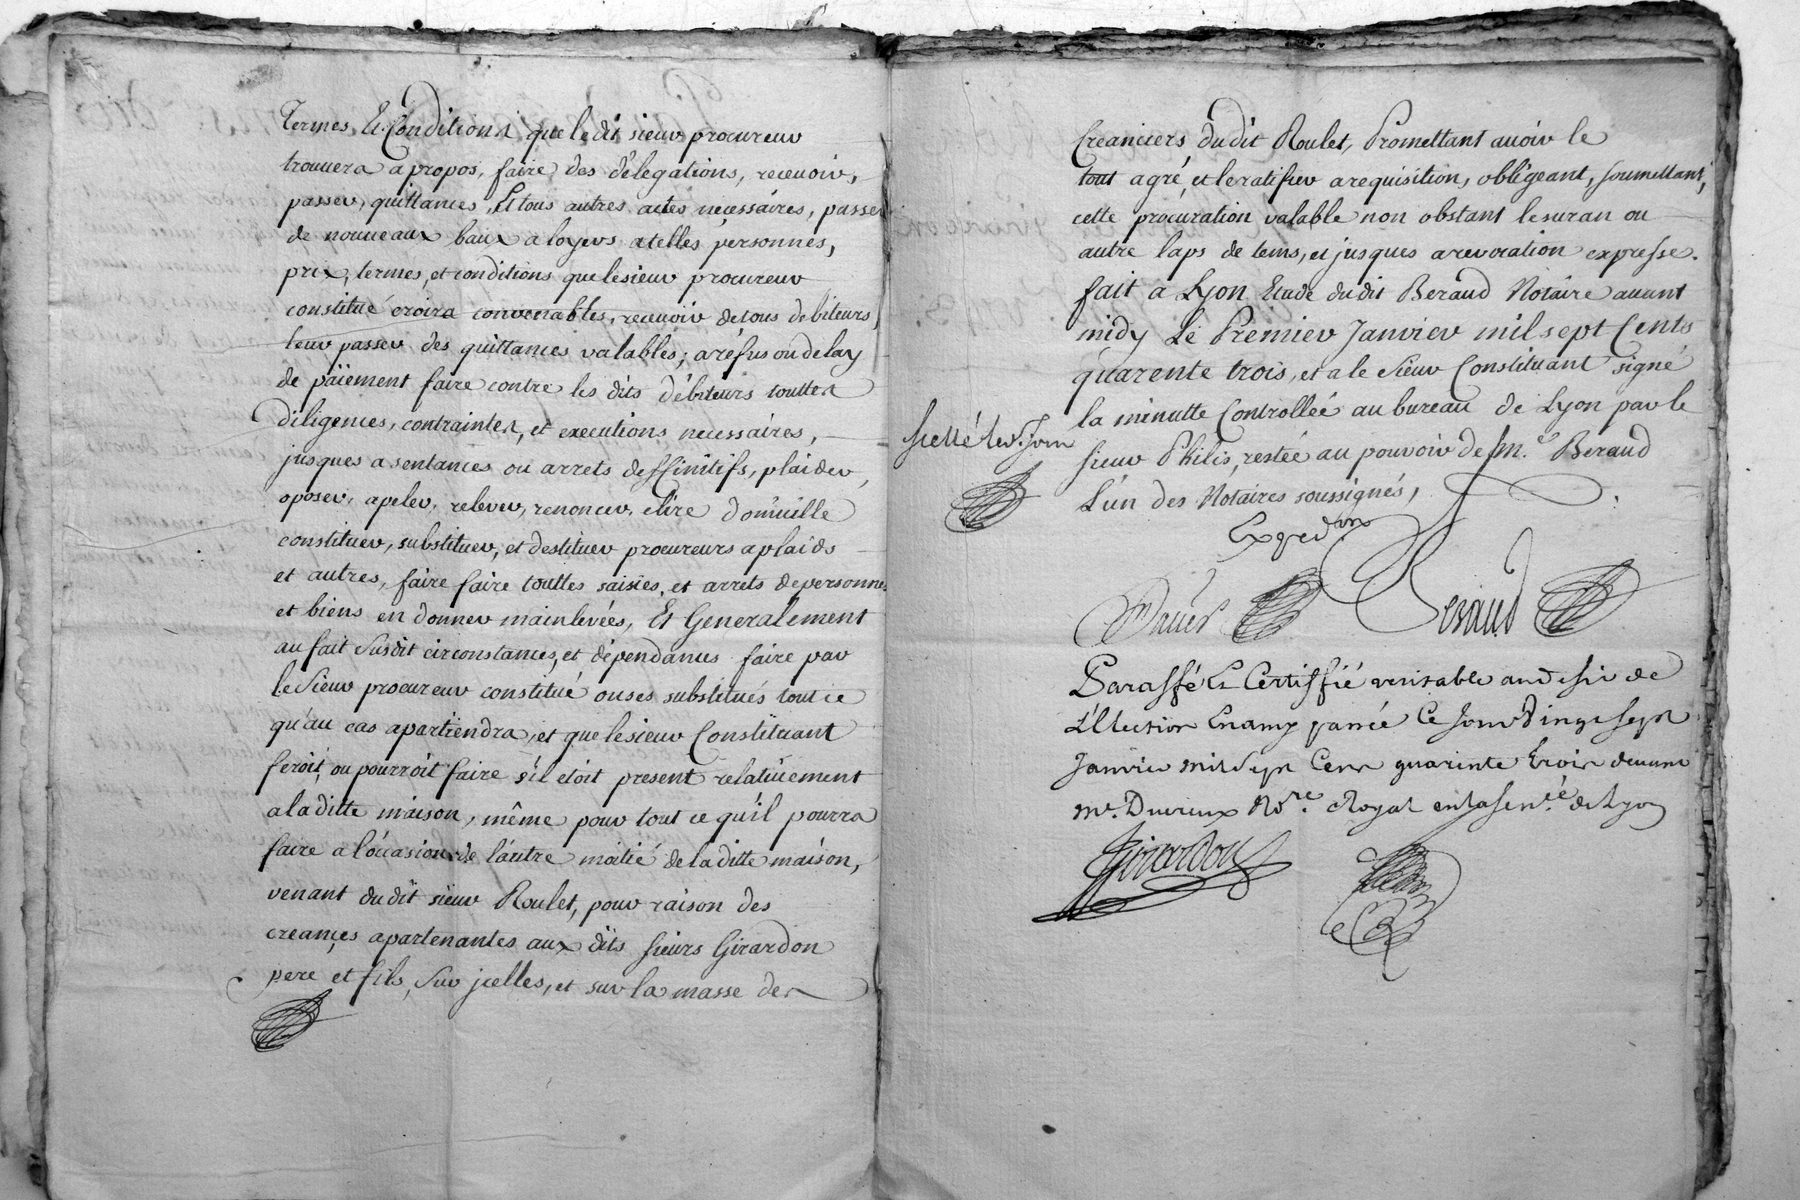 termes, Et Conditions que ledit sieur procureur
trouvera apropos, faire des délegations, recevoir,
passer, quittances, Et tous autres actes necessáires, passer
de nouveaux baux a loyers atelles personnes,
prix, termes, et conditions que lesieur procureur
constitué croira convenables, recevoir detous debiteurs,
leur passer des quittances valables; aréfus ou delay
de païement faire contre les dits débiteurs touttes
diligences, contraintes, et executions necessáires,
jusques a sentances ou arrets deffinitifs, plaider,
oposer, apeler, relever, renoncer, elire domicille
constituer, substituer, et destituer procureurs aplaids
et autres, faire faire touttes saisies, et arrets depersonnes
et biens en donner mainlevées, Et Generalement
au fait susdit circonstances, et dépendances faire par
le Sieur procureur constitué ouses substitués tout ce
qu'au cas apartiendra, et que lesieur Constituant
feroit, ou pourroit faire s'il etoit present relativement
aladitte maison, même pour tout ce qu'il pourra
faire a l'ócasion de láutre moitié deladitte maison,
venant dudit sieur Roulet, pour raison des
creances apartenantes aux dits sieurs Girardon
pere et fils, sur jcelles, et sur la masse des
Creanciers dudit Roulet, Promettant avoir le
tout agré, et leratifier arequisition, obligeant, soumettant,
cette procuration valable non obstant lesuran ou
autre laps de tems, et jusques arevocation expresse.
fait a Lyon Etude dudit Beraud Notaire avant
midy Le Premier Janvier mil sept Cents
quarente trois, et a le Sieur Constituant signé
la minutte Controlleé au bureau de Lyon par le
sieur Philis, restée au pouvoir de Me. Beraud
L'un des Notaires soussignés,
scellé led. Jour
Expedon
Beraud
Paraffé Et Certiffié veritable au desir de
L'Election Enamp passée Ce Jourd'huy sept
Janvier mil sept Cens quarente trois devant
Me. Ducreux Nore. Royal en la Senée. de Lyon
Girardon